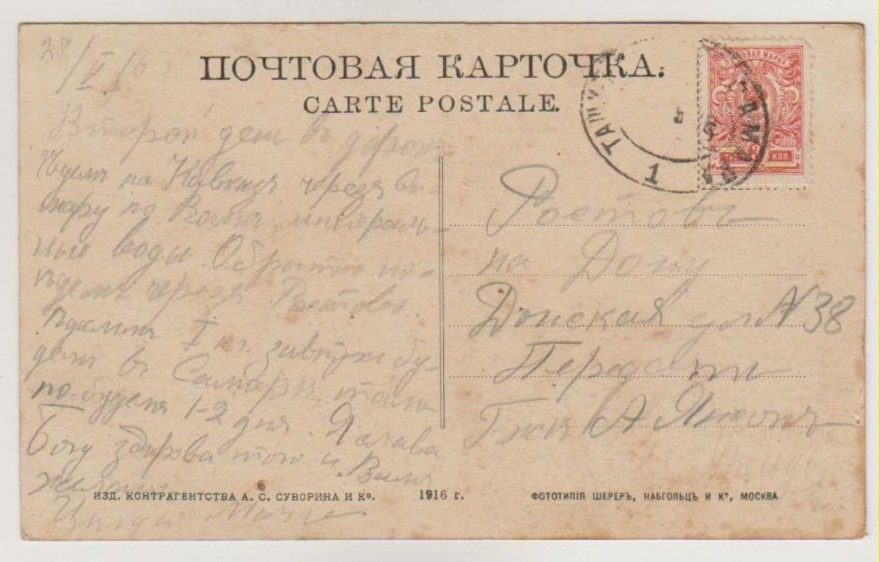 28/V 16
ПОЧТОВАЯ КАРТОЧКА.
CARTE POSTALE.
Второй день в дороге
Едем на Кавказ через Са-
мару по Волге, минераль-
ные воды. Обратно по-
едем через Ростовъ.
I кл. завтра бу-
дем въ Самаре, там
по будем 1-2 дня. Я слава
Богу здорова того и Вам
желаю
Ростовъ
на Дону
Донская ул N 38
Передать
А
ТАШК
САМАРА
1
КОП.
ИЗД. КОНТРАГЕНТСТВА А. С. СУВОРИНА И К°.
1916 г.
ФОТОТИПІЯ ШЕРЕРЪ, НАБГОЛЬЦЪ И К°, МОСКВА.